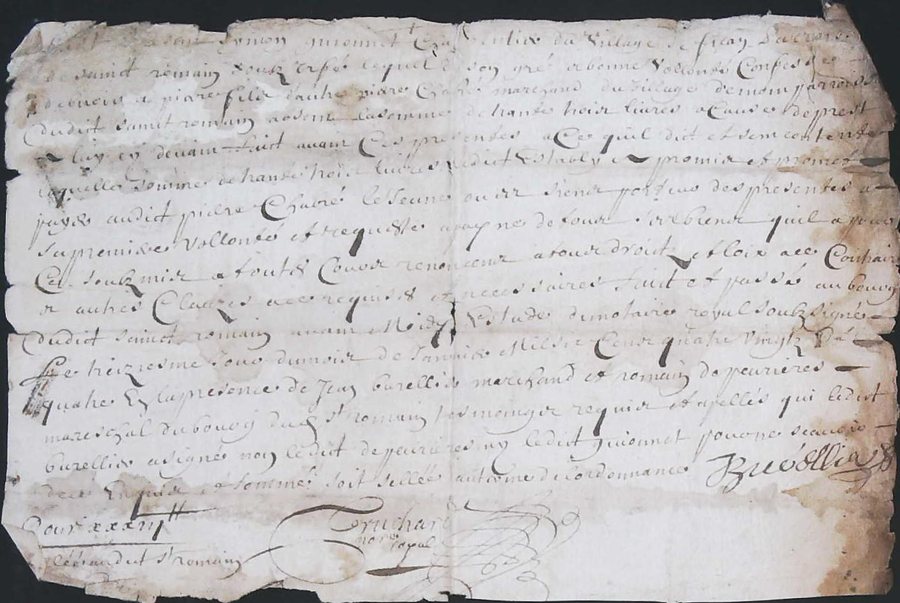 Simon guionnet Charpentier du village de
de sainct romain soubz urfé lequel de son gré et bonne vollonté Confesse
debvoir a piarre filz d'autre piarre Chabré marchand du village parroisse
dudit sainct romain absent la somme de trante trois livres a Cause de prest
a luy cy devant faict avant Ces presentes a Ce qu'il dict et s'en contente
laquelle somme de trante trois livres ledict Estably a promis et promet
payer audict pierre Chabré le Jeune ou aux siens porteur des presentes a
sa premiere vollonté et requeste a payne de tous ses biens qu'il a pour
Ce soubzmis a toutes Cours renonceant a tous droitz et loix a ce Contraires
et autres Clauzes a ce requises et necessaires faict et passé au bourg
dudit sainct romain avant Midy Estude du notaire royal soubzsigné
Le treiziesme jour du mois de Janvier Mil six Cens quatre vingtz
quatre En la presence de Jean burellier marchand et romain de peurieres
mareschal du bourg dud St romain tesmoingz requis et apellés qui ledit
burellier a signé non ledit de peurieres ny ledit guionnet pour ne scavoir
de ce Enquis et sommés soit sellée au terme de l'ordonnance Burellier
Pour xxxiii tt
Truchard
notre
royal
audit St romain